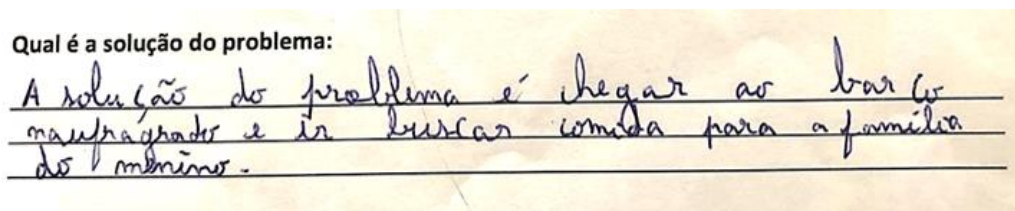 Qual é a solução do problema:
A solução do problema é chegar ao barco
naufragrado e ir buscar comida para a família
do menino.